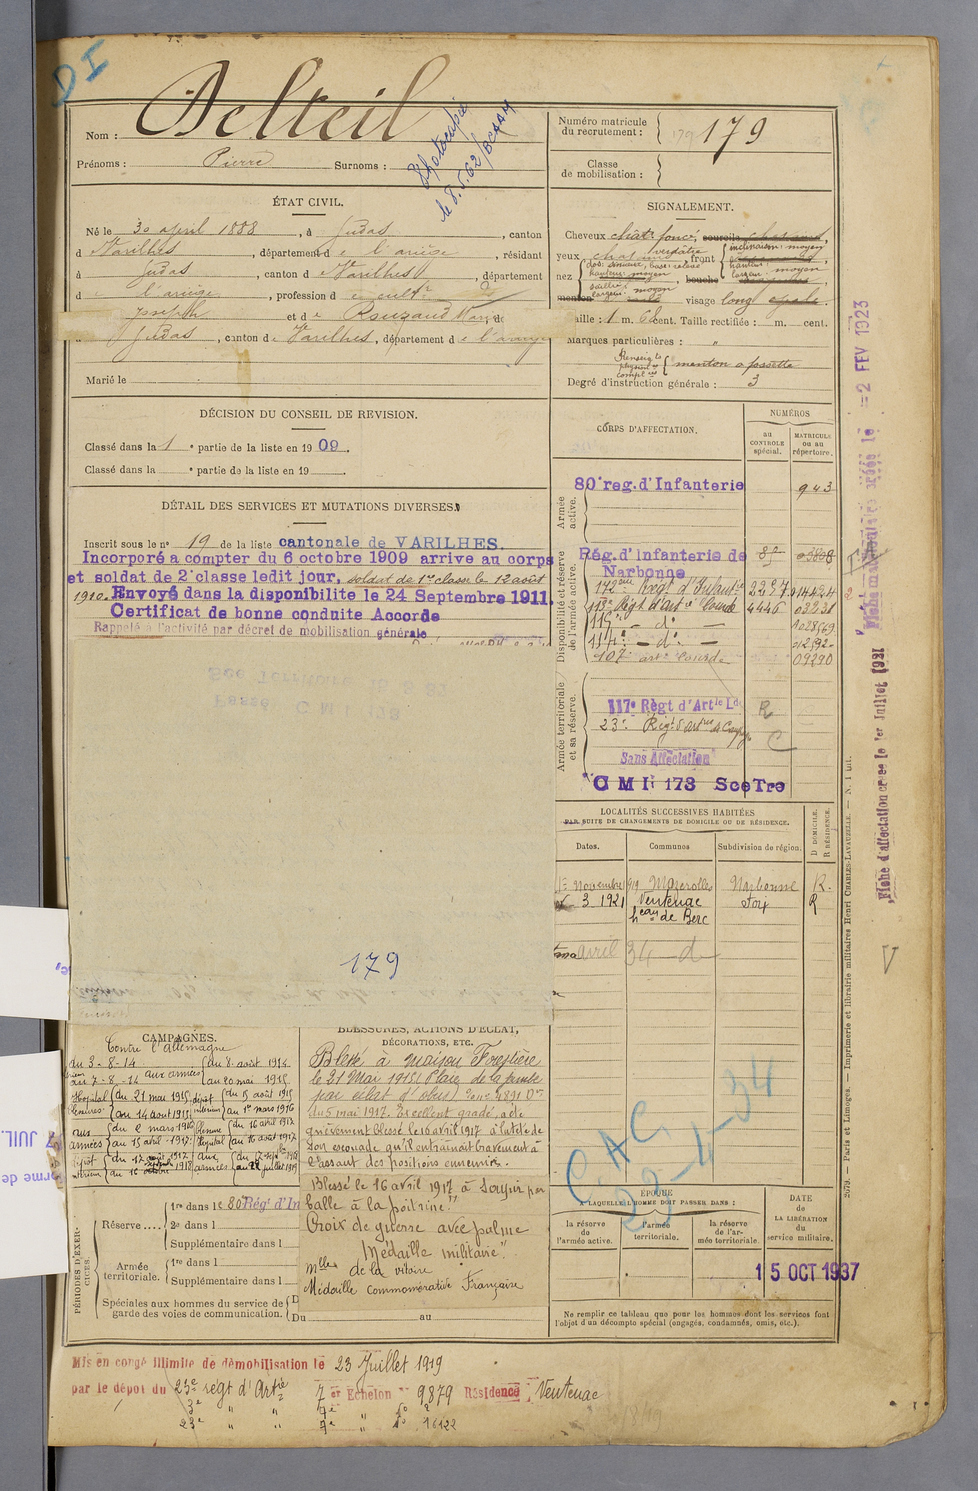 DI
Nom : Delteil
Prénoms : Pierre Surnoms :
Photocopié
le 8.5.62/BCAAM
Numéro matricule
du recrutement : 179
Classe
de mobilisation :
ÉTAT CIVIL.
Né le 30 april 1888, à Judas, canton
d Varilhes, département d e l'ariège, résidant
à Judas, canton d e Varilhes, département
d l'ariège, profession d e cultr
Joseph et d e Rouzaud
Judas, canton d e Varilhes, département d e l'ariège
Marié le
SIGNALEMENT.
Cheveux chât. foncé, sourcils
yeux verdâtre, front inclinaison : moyen
hauteur :
largeur : moyen
nez dos : sinueux, base : relevé
hauteur : moyen
saillie
largeur : moyen
bouche
menton visage long
Taille : 1 m. 68 cent. Taille rectifiée : m. cent.
Marques particulières : "
Renseigts
physiques
complres menton a fossette
Degré d'instruction générale : 3
DÉCISION DU CONSEIL DE REVISION.
Classé dans la 1e partie de la liste en 1909.
Classé dans la e partie de la liste en 19
DÉTAIL DES SERVICES ET MUTATIONS DIVERSES.
Inscrit sous le n° 19 de la liste cantonale de VARILHES.
Incorporé a compter du 6 octobre 1909 arrive au corps
et soldat de 2e classe ledit jour, soldat de 1re classe le 12 août
1910. Envoyé dans la disponibilite le 24 Septembre 1911.
Certificat de bonne conduite Accorde
Rappelé à l'activité par décret de mobilisation générale
179
CORPS D'AFFECTATION.
NUMÉROS
au
CONTROLE
spécial.
MATRICULE
ou au
répertoire.
Armée
active.
80e reg. d'Infanterie 943
Disponibilité et réserve
de l'armée active.
Rég. d'Infanterie de
Narbonne
142ème Régt d'Infantie 2257 014424
113e Régt d'artie lourde 4446 03231
115e — d° —
114e — d° —
107e arti lourde 09290
Armée territoriale
et sa réserve.
117e Règt d'Artie Lde R
23e Régt d'artrie de Campgne C
Sans Affectation
C M I 173 SceTre
LOCALITÉS SUCCESSIVES HABITÉES
PAR SUITE DE CHANGEMENTS DE DOMICILE OU DE RÉSIDENCE.
Dates.
Communes
Subdivision de région.
D DOMICILE.
R RÉSIDENCE.
1er Novembre 1919 Mazerolles Narbonne R.
3 1921 Ventenac Foix R
heau de Berc
avril 34 — d —
C.A.C
23-4-34
CAMPAGNES.
Contre l'allemagne
du 3-8-14 du 8 août 1914
du 7-8-14 aux armées au 20 mai 1915
Hopital du 21 mai 1915 dépôt du 15 août 1915
au 14 août 1915 intérieur au 1er mars 1916
aux du 2 mars 1916 blessure du 16 avril 1917
armées au 15 avril 1917 hopital au 16 août 1917
dépôt du 17 août 1917 aux
intérieur 1918 armées au 22 juillet 1919
BLESSURES, ACTIONS D'ÉCLAT,
DÉCORATIONS, ETC.
Blessé à maison Forestière
le 21 Mai 1915 (Plaie de la jambe
par éclat d'obus)
du 5 mai 1917. Excellent gradé, a été
grièvement blessé le 16 avril 1917 à la tête de
son escouade qu'il entraînait bravement à
l'assaut des positions ennemies.
Blessé le 16 avril 1917 à Soupir par
balle à la poitrine."
Croix de guerre avec palme
Médaille militaire".
mlle de la victoire
Médaille commemorative Française
PÉRIODES D'EXER-
CICES.
Réserve .... 1re dans l e 80e Régt d'In
2e dans l
Supplémentaire dans l
Armée
territoriale. 1re dans l
Supplémentaire dans l
Spéciales aux hommes du service de
garde des voies de communication.
Du au
ÉPOQUE
A LAQUELLE L'HOMME DOIT PASSER DANS :
la réserve
de l'armée active.
l'armée
territoriale.
la réserve
de l'ar-
mée territoriale.
DATE
de
LA LIBÉRATION
du
service militaire.
15 OCT 1937
Ne remplir ce tableau que pour les hommes dont les services font
l'objet d'un décompte spécial (engagés, condamnés, omis, etc.).
Mis en congé illimite de démobilisation le 23 Juillet 1919
par le dépot du 23e régt d'Artie 7 er Echelon N° 9879 Résidence Ventenac
3e " "
23e " " 7e " n° 16122
2079. — Paris et Limoges. — Imprimerie et librairie militaires Henri CHARLES-LAVAUZELLE. — N. 1 bis.
Fiche d'affectation créée le 1er Juillet 1931
Fiche matriculaire créée le -2 FEV 1923
V